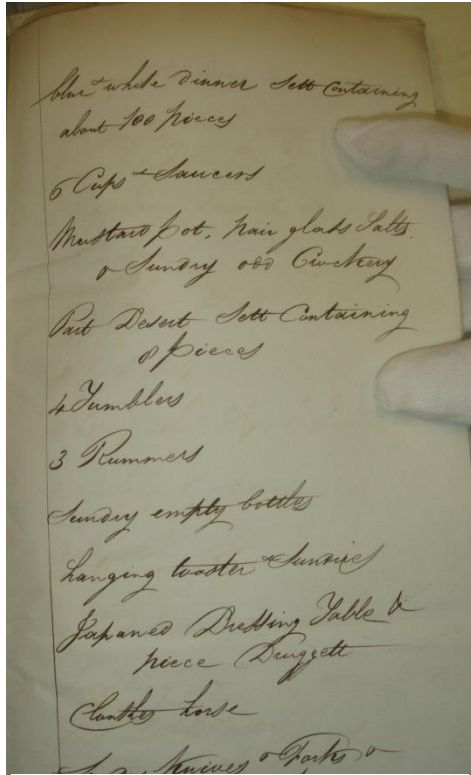 blue & white Dinner Sett Containing
about 100 pieces
6 Cups & Saucers
Mustard pot, pair glass Salts
& Sundry odd Crockery
Part Desert Sett Containing
8 pieces
4 Tumblers
3 Rummers
Sundry empty bottles
hanging toaster & Sundries
Japaned Dressing Table &
piece Druggett
Cloathes horse
Knives & Forks &